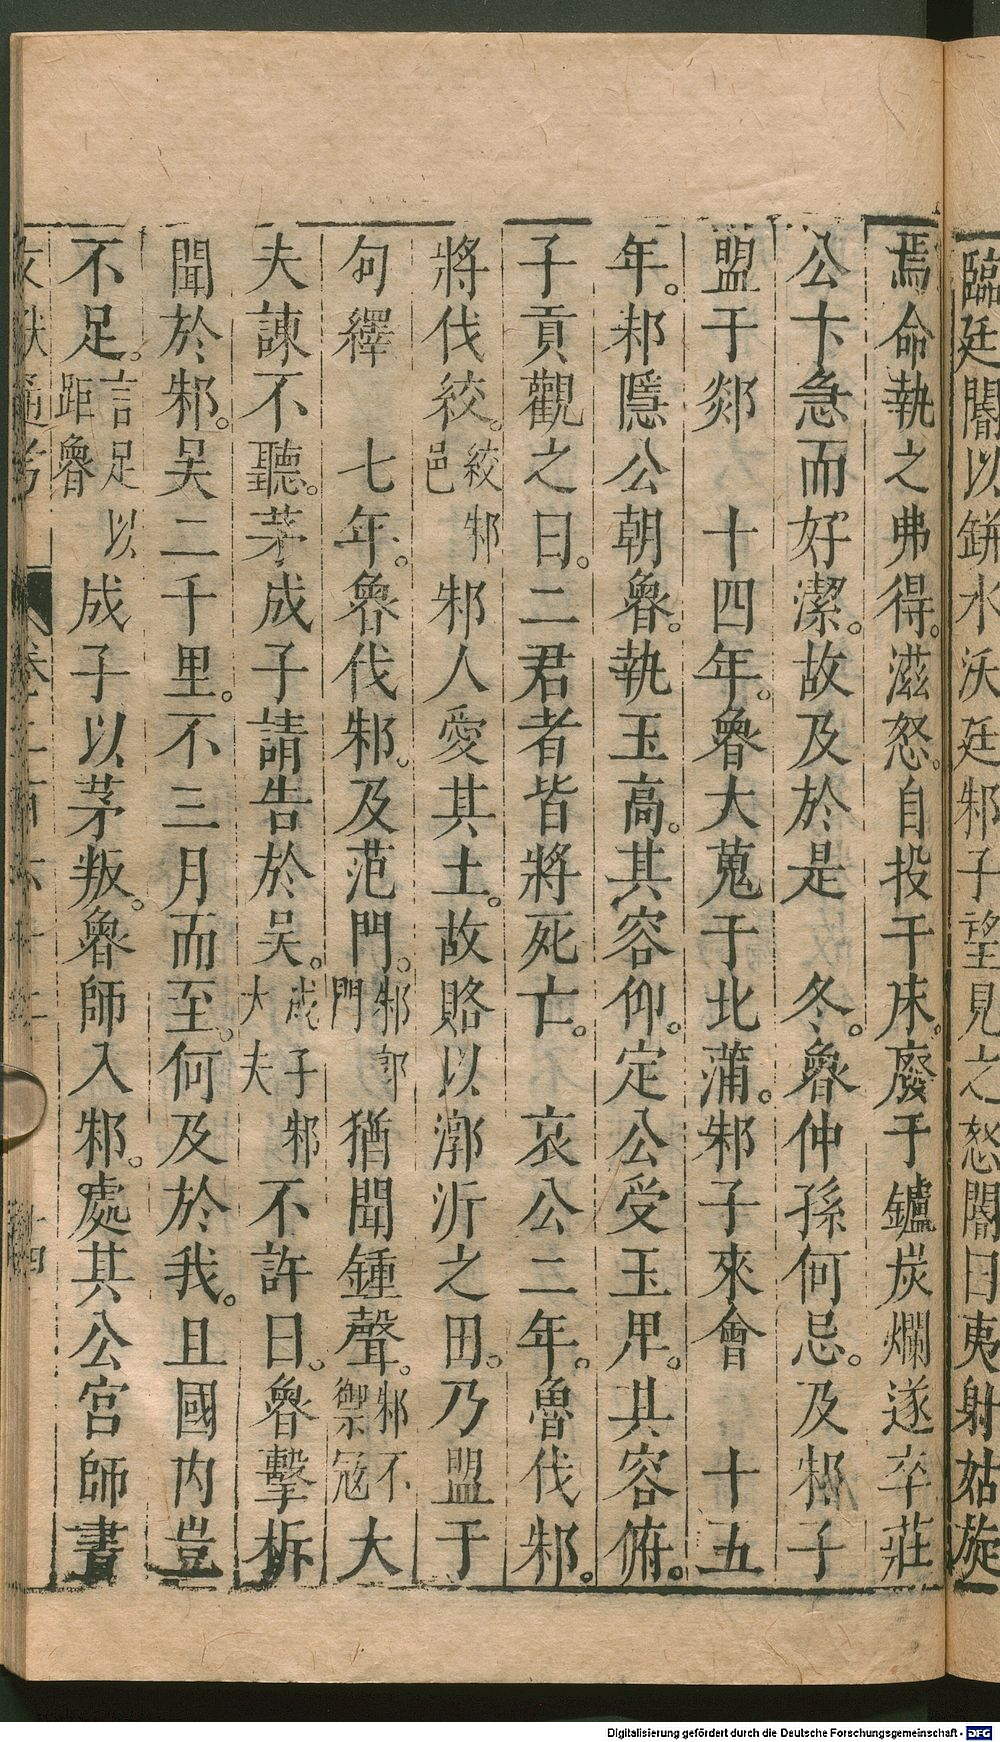 臨廷閽以缾水沃廷邾子望見之怒閽曰夷射姑旋
焉命執之弗得。滋怒。自投于床。廢于鑪炭爛遂卒莊
公卞急而好潔。故及於是 冬。魯仲孫何忌。及邾子
盟于郯 十四年。魯大蒐于北蒲。邾子來會 十五
年。邾隱公朝魯。執玉高。其容仰。定公受玉卑。其容俯。
子貢觀之曰。二君者皆將死亡。 哀公二年。魯伐邾。
將伐絞。絞邾邑 邾人愛其土。故賂以漷沂之田。乃盟于
句繹 七年。魯伐邾。及范門。邾郭門 猶聞鍾聲。邾不禦寇 大
夫諫不聽。茅成子請告於吳。成子邾大夫 不許曰。魯擊柝
聞於邾。吳二千里。不三月而至。何及於我。且國內豈
不足。言足以距魯 成子以茅叛。魯師入邾。處其公宮師晝
文獻通考 卷二百六十二 十四
Digitalisierung gefördert durch die Deutsche Forschungsgemeinschaft - DFG